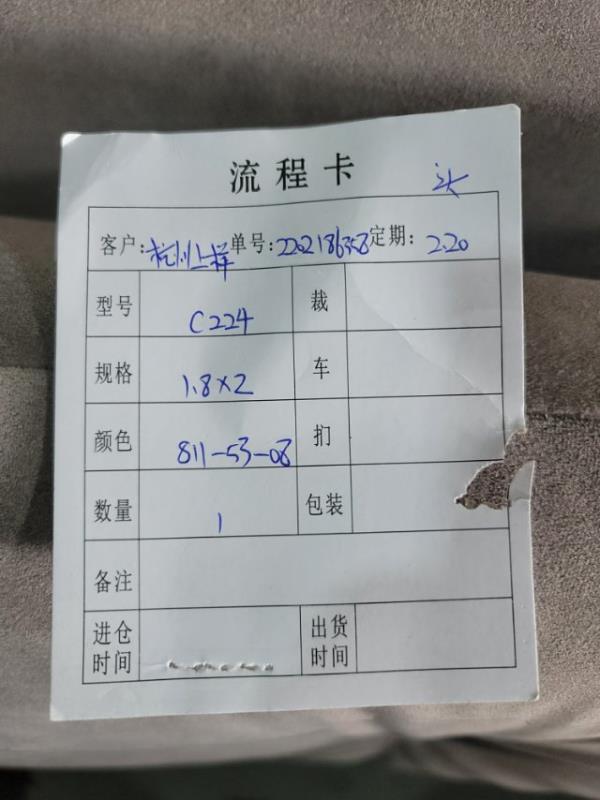 流程卡
头
客户:杭州上样 单号:2202186358 定期:2.20
型号 C224 裁
规格 1.8×2 车
颜色 811-53-08 扪
数量 1 包装
备注
进仓时间 出货时间